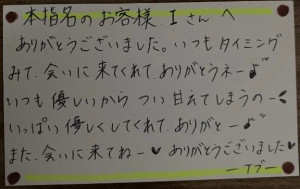 本指名のお客様 Iさんへ
ありがとうございました。いつもタイミング
みて、会いに来てくれて、ありがとうネー♪
いつも優しいから つい甘えてしまうのー
いっぱい優しくしてくれて、ありがとー♪
また、会いに来てねー♥ ありがとうございました♥